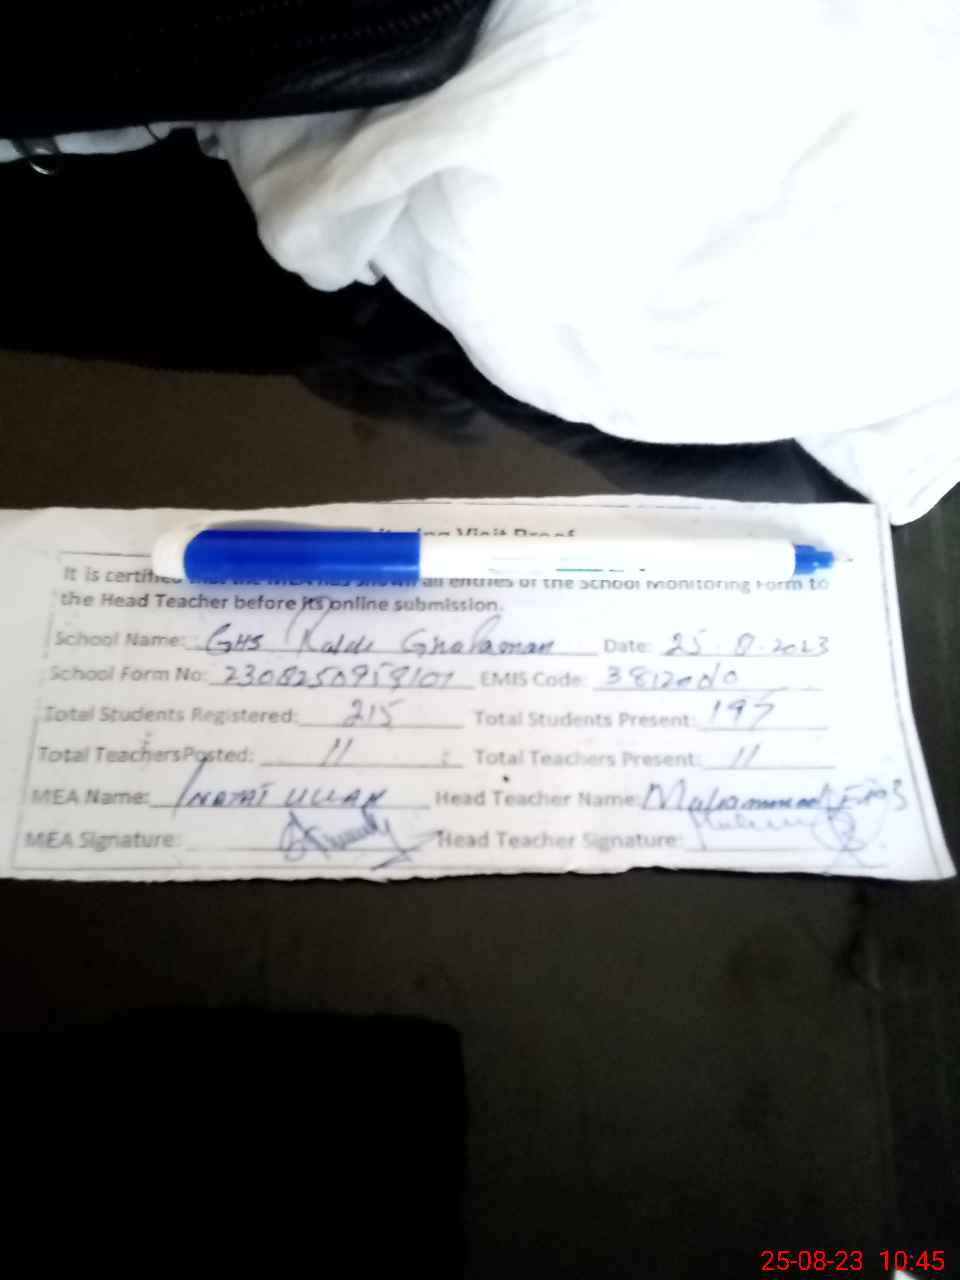 itoring Visit Proof
It is certified that the MEA has shown all entries of the School Monitoring Form to
the Head Teacher before its online submission.
School Name: GHS Date: 25.8.2023
School Form No: EMIS Code:
Total Students Registered: 215 Total Students Present:
Total TeachersPosted: 11 Total Teachers Present: 11
MEA Name: INAYAT ULLAH Head Teacher Name: Muhammad
MEA Signature: Head Teacher Signature:
25-08-23 10:45